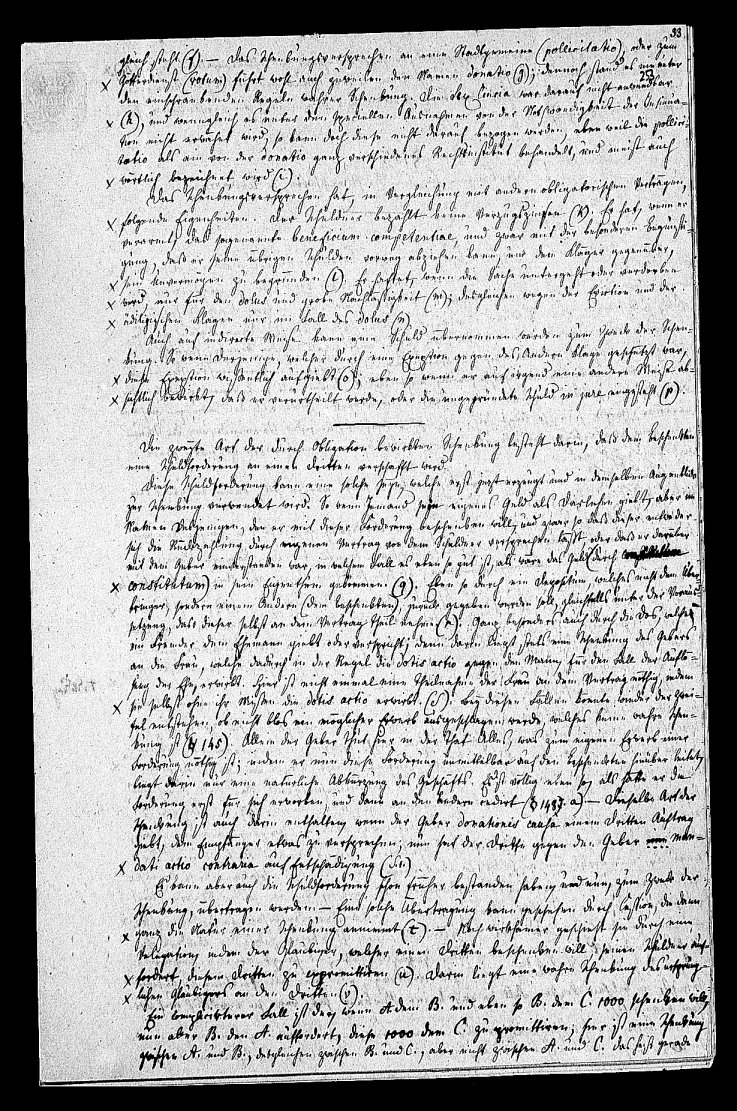 33
gleich steht (f). — Das Schenkungsversprechen an eine Stadtgemeine (pollicitatio), oder zum
Götterdienst (votum) führt wohl auch zuweilen den Namen donatio (g); dennoch stand es nie unter
252
den einschränkenden Regeln wahrer Schenkung. Die lex Cincia war darauf nicht anwendbar
x (h), und wenngleich es unter den speciellen Ausnahmen von der Nothwendigkeit der Insinua-
tion nicht erwähnt wird, so kann doch diese nicht darauf bezogen werden, eben weil die pollici-
tatio als ein von der donatio ganz verschiedenes Rechtsinstitut behandelt, und meist auch
x wörtlich bezeichnet wird (i).
Das Schenkungsversprechen hat, in Vergleichung mit andern obligatorischen Verträgen,
x folgende Eigenheiten. Der Schuldner bezahlt keine Verzugszinsen (k). Er hat, wenn er
verarmt, das sogenannte beneficium competentiae, und zwar mit der besonderen Begünsti-
gung, daß er seine übrigen Schulden vorweg abziehen kann, um dem Kläger gegenüber,
x sein Unvermögen zu begründen (l). Er haftet, wenn die Sache untergeht oder verdorben
x wird, nur für den dolus und grobe Nachlässigkeit (m); desgleichen wegen der Eviction und der
x ädilizischen Klagen nur im Fall des dolus (n)
Auch auf indirecte Weise kann eine Schuld übernommen werden zum Zweck der Schen-
kung. So wenn Derjenige, welcher durch eine Exception gegen des Andern Klage geschützt war,
x diese Exception wissentlich aufgiebt (o); eben so wenn er auf irgend eine andere Weise ab-
x sichtlich bewirkt, daß er verurtheilt werde, oder die ungegründete Schuld in jure eingesteht (p).
Die zweyte Art der durch Obligation bewirkten Schenkung besteht darin, daß dem Beschenkten
eine Schuldforderung an einen Dritten verschafft wird.
Diese Schuldforderung kann eine solche seyn, welche erst jetzt erzeugt und in demselben Augenblick
zur Schenkung verwendet wird. So wenn Jemand sein eigenes Geld als Darlehen giebt, aber im
Namen Desjenigen, den er mit dieser Forderung beschenken will, und zwar so daß dieser entweder
sich die Rückzahlung durch eigenen Vertrag von dem Schuldner versprechen läßt, oder daß er darüber
mit dem Geber einverstanden war, in welchem Fall es eben so gut ist, als wäre das Geld (durch
x constitutum) in sein Eigenthum gekommen (q). Eben so durch ein Depositum, welches nicht dem Über-
bringer, sondern einem Andern (dem Beschenkten), zurück gegeben werden soll, gleichfalls unter der Voraus-
setzung, daß dieser selbst an dem Vertrag Theil nehme (r). Ganz besonders auch durch die Dos, welche
ein Fremder dem Ehemann giebt oder verspricht; denn darin liegt stets eine Schenkung des Gebers
an die Frau, welche dadurch in der Regel die dotis actio gegen den Mann, für den Fall der Auflö-
sung der Ehe, erwirbt. Hier ist nicht einmal eine Theilnahme der Frau an dem Vertrag nöthig, indem
x sie selbst ohne ihr Wissen die dotis actio erwirbt (s). Bey diesen Fällen könnte wieder der Zwei-
fel entstehen, ob nicht blos ein möglicher Erwerb ausgeschlagen werde, welches keine wahre Schen-
kung ist (§ 145). Allein der Geber thut hier in der That Alles, was zum eigenen Erwerb einer
Forderung nöthig ist; indem er nun diese Forderung unmittelbar auf den Beschenkten hinüber leitet,
liegt darin nur eine natürliche Abkürzung des Geschäfts. Es ist völlig eben so, als hätte er die
Forderung erst für sich erworben, und dann an den Andern cedirt (§ 148. a) — Dieselbe Art der
Schenkung ist auch darin enthalten, wenn der Geber donationis causa einem Dritten Auftrag
giebt, dem Empfänger etwas zu versprechen; nun hat der Dritte gegen den Geber man-
x dati actio contraria auf Entschädigung
Es kann aber auch die Schuldforderung schon früher bestanden haben, und nun, zum Zweck der
Schenkung, übertragen werden. — Eine solche Übertragung kann geschehen durch Cession, die dann
x ganz die Natur einer Schenkung annimmt (t). — Noch wirksamer geschieht sie durch eine
Delegation, indem der Gläubiger, welcher einen Dritten beschenken will, seinen Schuldner auf-
x fordert, diesem Dritten zu expromittiren (u). Darin liegt eine wahre Schenkung des ursprüng-
x lichen Gläubigers an den Dritten (v).
Ein complicirterer Fall ist der, wenn A dem B. und eben so B. dem C. 1000 schenken will,
nun aber B. den A. auffordert, diese 1000 dem C. zu promittiren; hier ist eine Schenkung
zwischen A. und B., desgleichen zwischen B. und C., aber nicht zwischen A. und C. Das heißt gerade